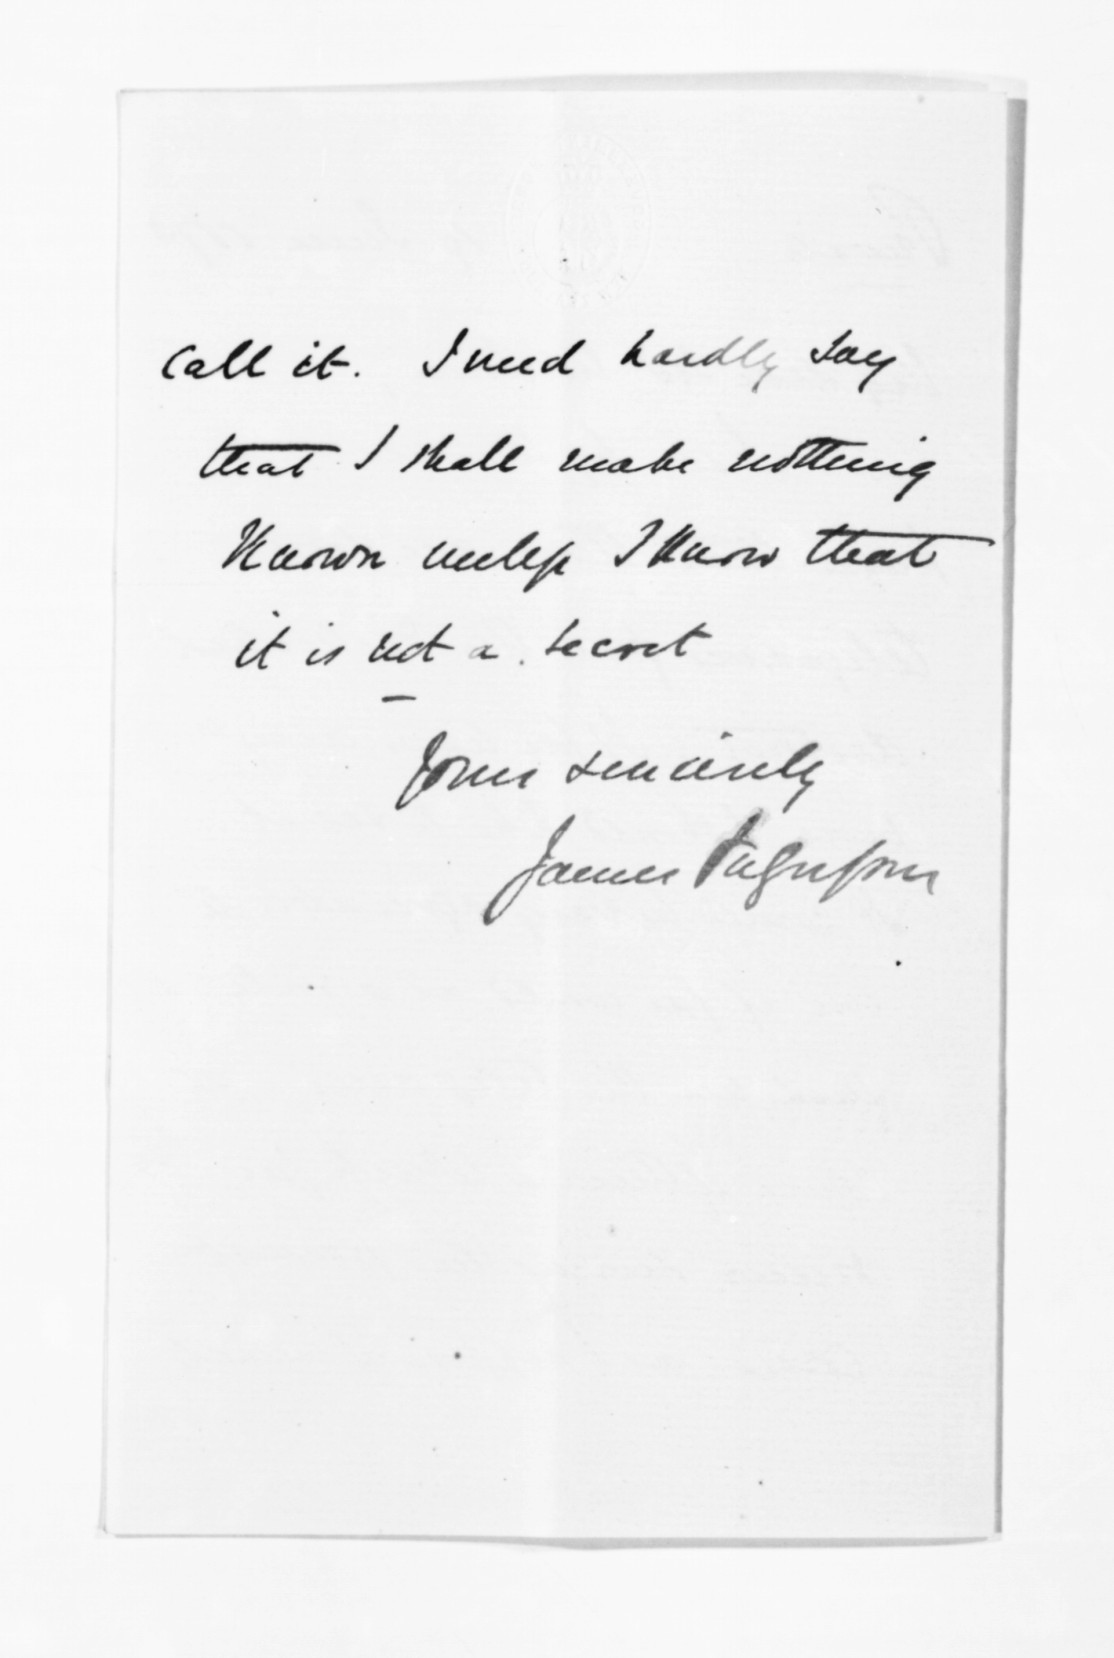 call it. I need hardly say
that I shall make nothing
known unless I know that
it is not a secret
Yours sincerely
James Fergusson